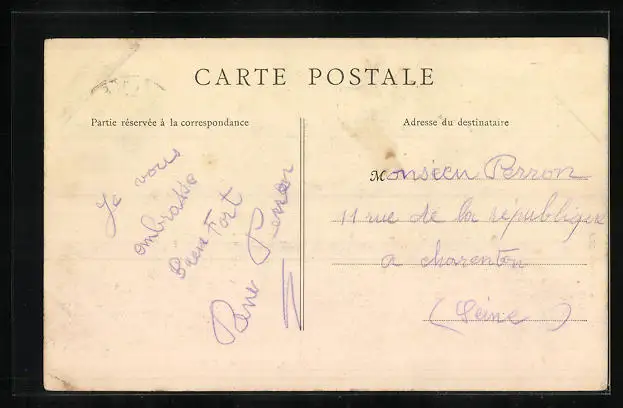 CARTE POSTALE
Partie réservée à la correspondance
Je vous
embrasse
bien Fort
René Perron
Adresse du destinataire
Monsieu Perron
11 rue de la république
a charenton
(Seine)